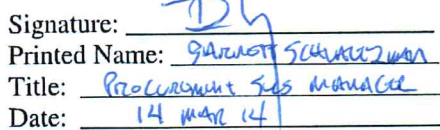 Signature:
Printed Name: GARRETT SCHWARTZMAN
Title: PROCUREMENT SUBS MANAGER
Date: 14 MAR 14